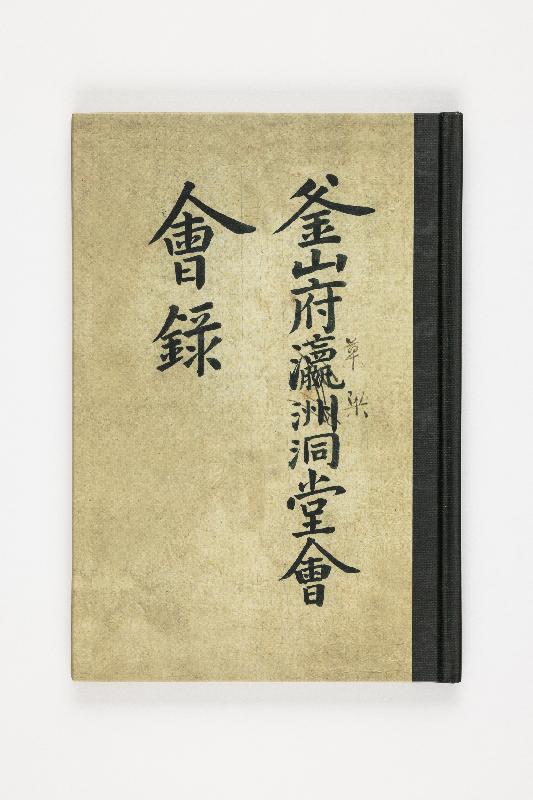 釜山府瀛洲洞堂會
草梁
會錄